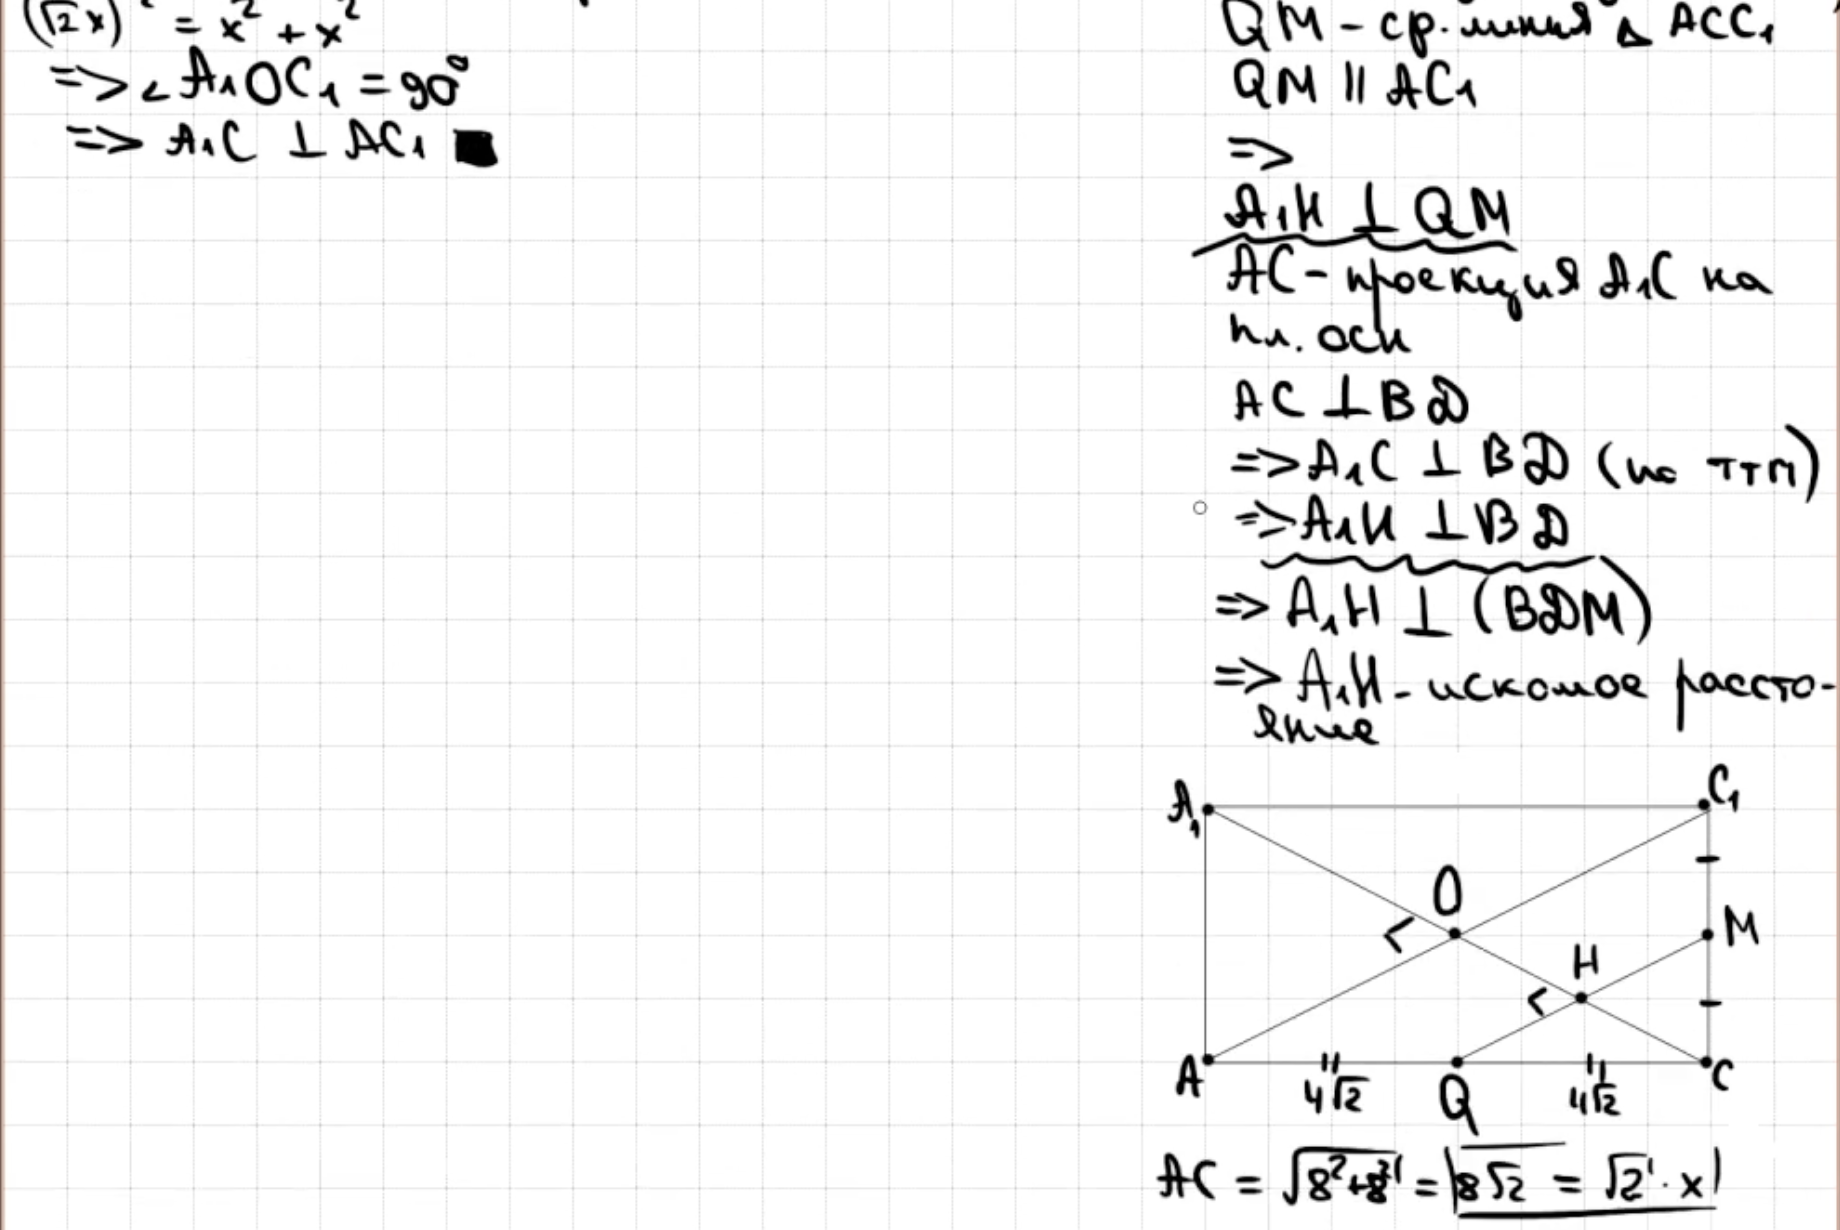 (√2x)² = x² + x²
=> ∠A₁OC₁ = 90°
=> A₁C ⊥ AC₁ ■
QM - ср. линия △ ACC₁
QM || AC₁
=>
A₁H ⊥ QM
AC - проекция A₁C на
пл. осн
AC ⊥ BD
=> A₁C ⊥ BD (по ТТП)
=> A₁H ⊥ BD
=> A₁H ⊥ (BDM)
=> A₁H - искомое рассто-
яние
A₁ C₁
O M
H
A 4√2 Q 4√2 C
AC = √8²+8² = 8√2 = √2 · x